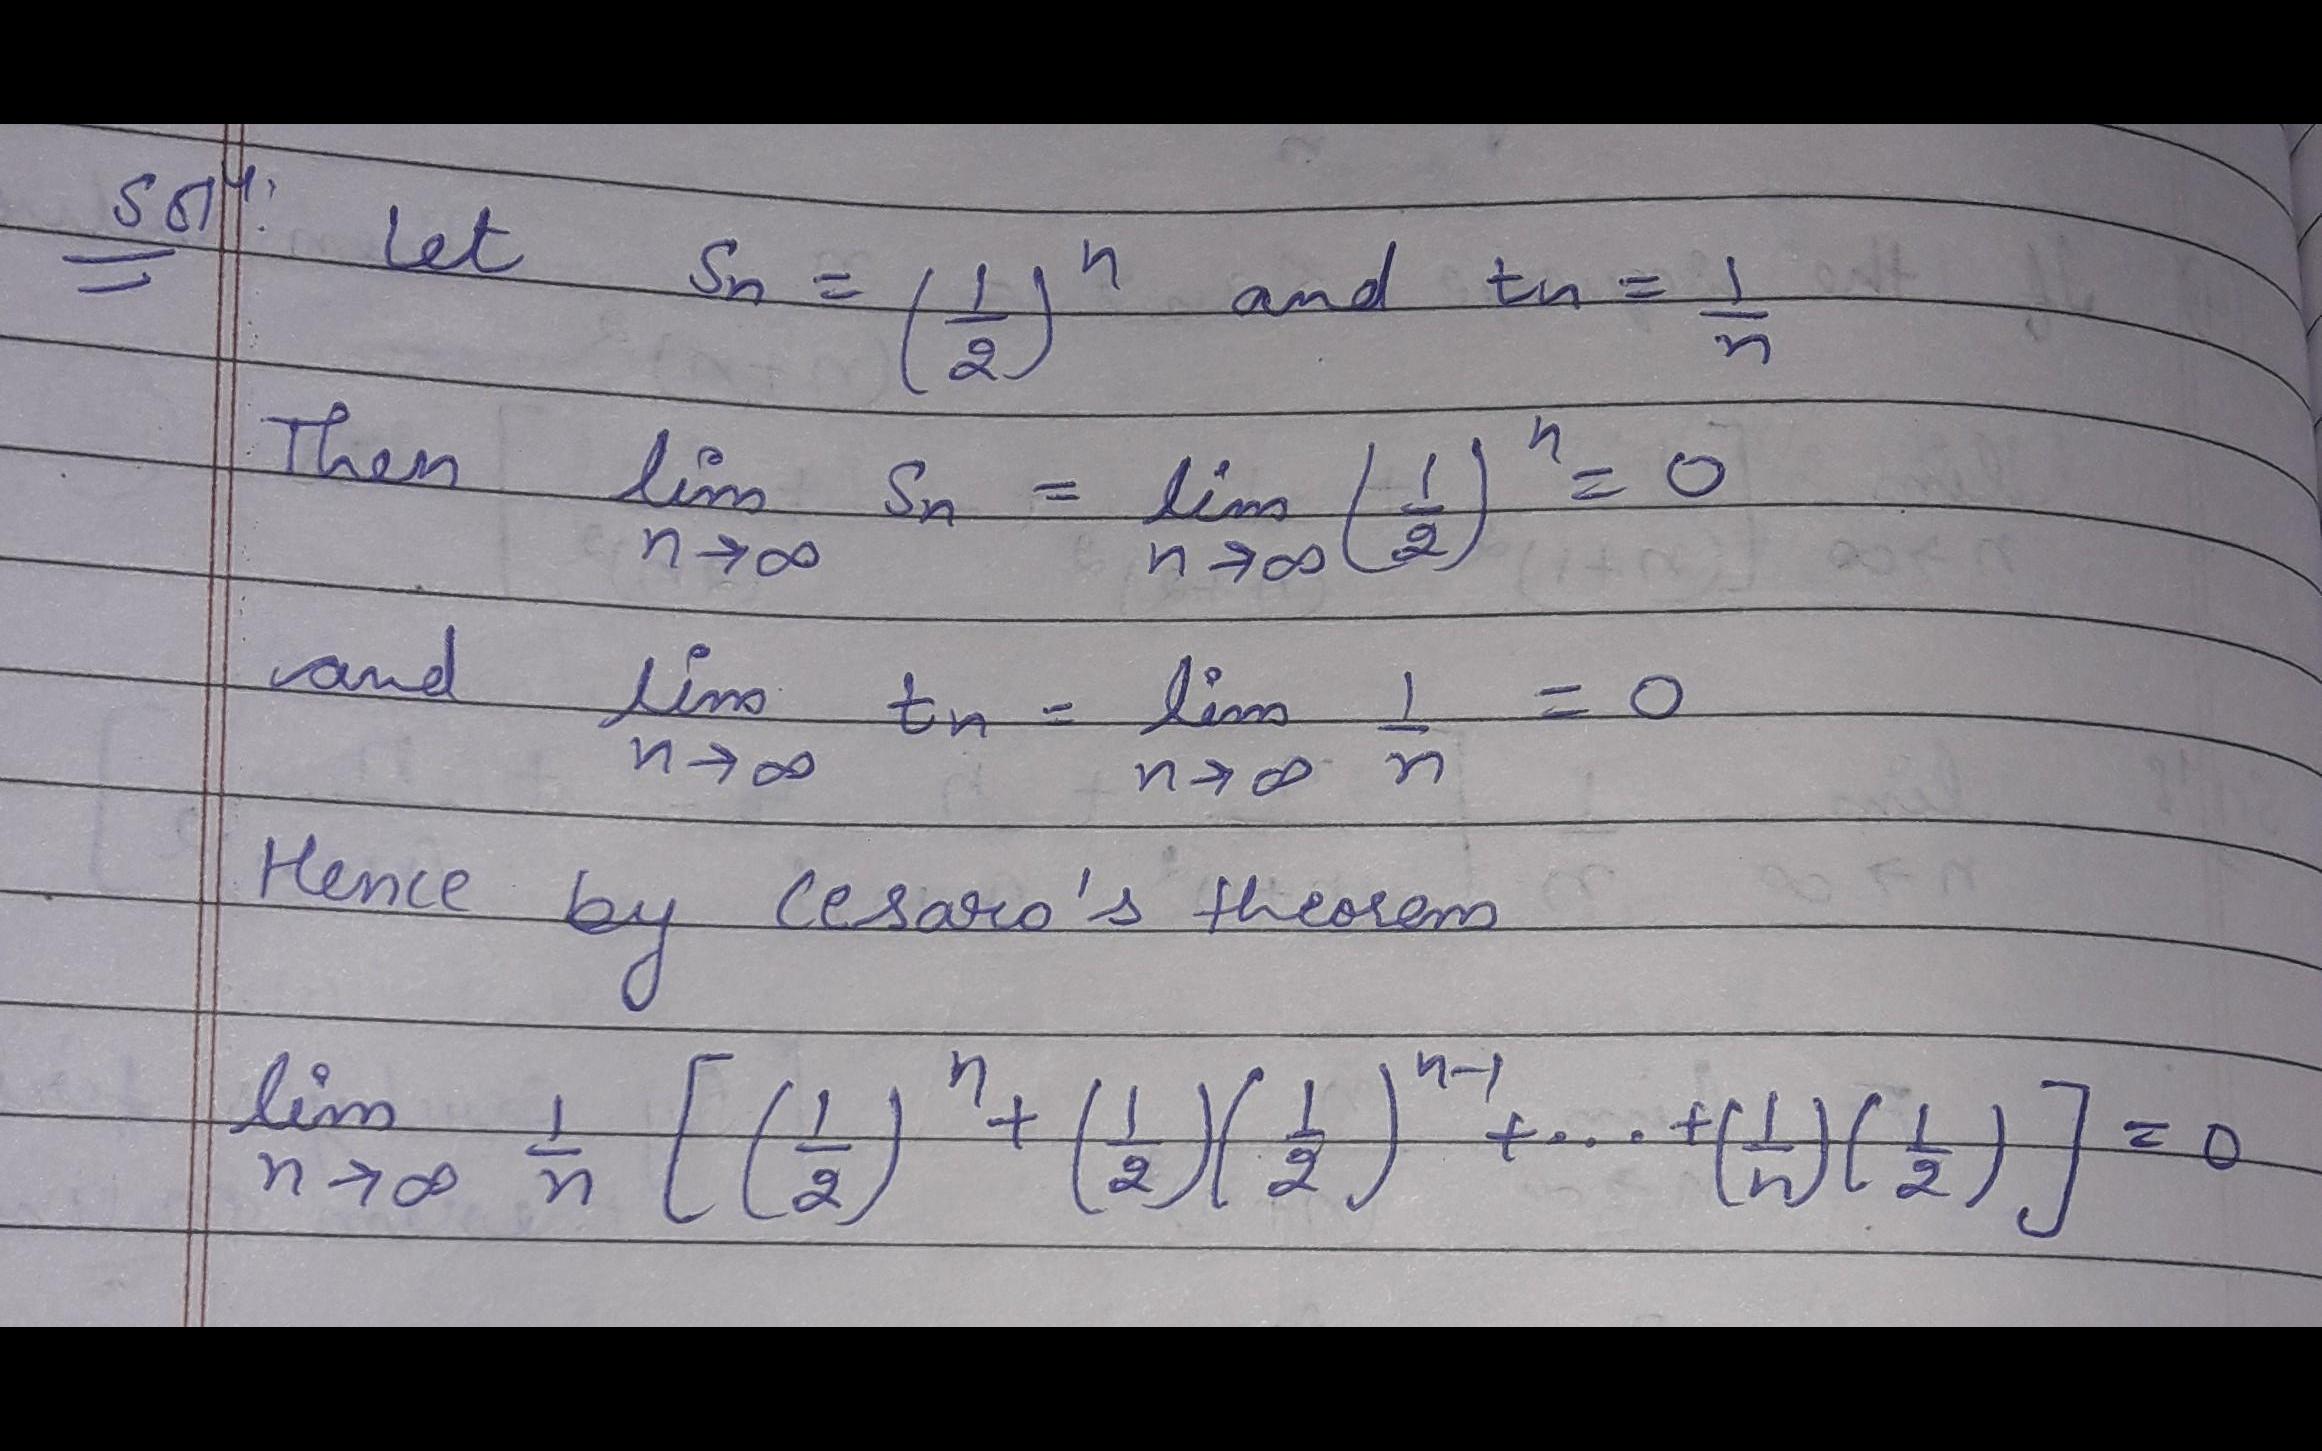 Soln: Let Sn = (1/2)^n and tn = 1/n
Then lim n→∞ Sn = lim n→∞ (1/2)^n = 0
and lim n→∞ tn = lim n→∞ 1/n = 0
Hence by Cesaro's theorem
lim n→∞ 1/n [(1/2)^n + (1/2)(1/2)^n-1 + .... + (1/n)(1/2)] = 0